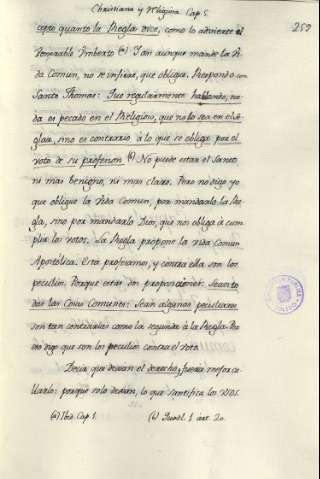 Christiana y Religiosa Cap. 5.
259
cepto quanto la Regla dice, como lo advierte el
Venerable Umberto (a) Y an aunque mande la Vi-
da Comun, no se infiere, que obliga. Respondo con
Santo Thomas: Que regularmente hablando, na-
da es pecado en el Religioso, que no lo sea en el Se-
glar, sino es contrario à lo que se obliga por el
voto de su profesion (b) No puede estar el Santo
ni mas benigno, ni mas claro. Pero no digo yo
que obligue la Vida Comun, por mandarlo la Re-
gla, sino por mandarlo Dios, que nos obliga à cum-
plir los votos. La Regla propone la vida Comun
Apostolica. Esta profesamos, y contra ella son los
peculios. Porque estas dos proposiciones: Sean to-
das las Cosas Comunes: Sean algunas peculiares
son tan contrarias como la segunda à la Regla. Por
eso digo que son los peculios contra el voto.
Decir que desean el derecho, fuera mejor ca-
llarlo: porque solo desean, lo que santifica los vicios.
(a) Ibid. Cap. 1.
(b) Quodl. 1. art. 20.